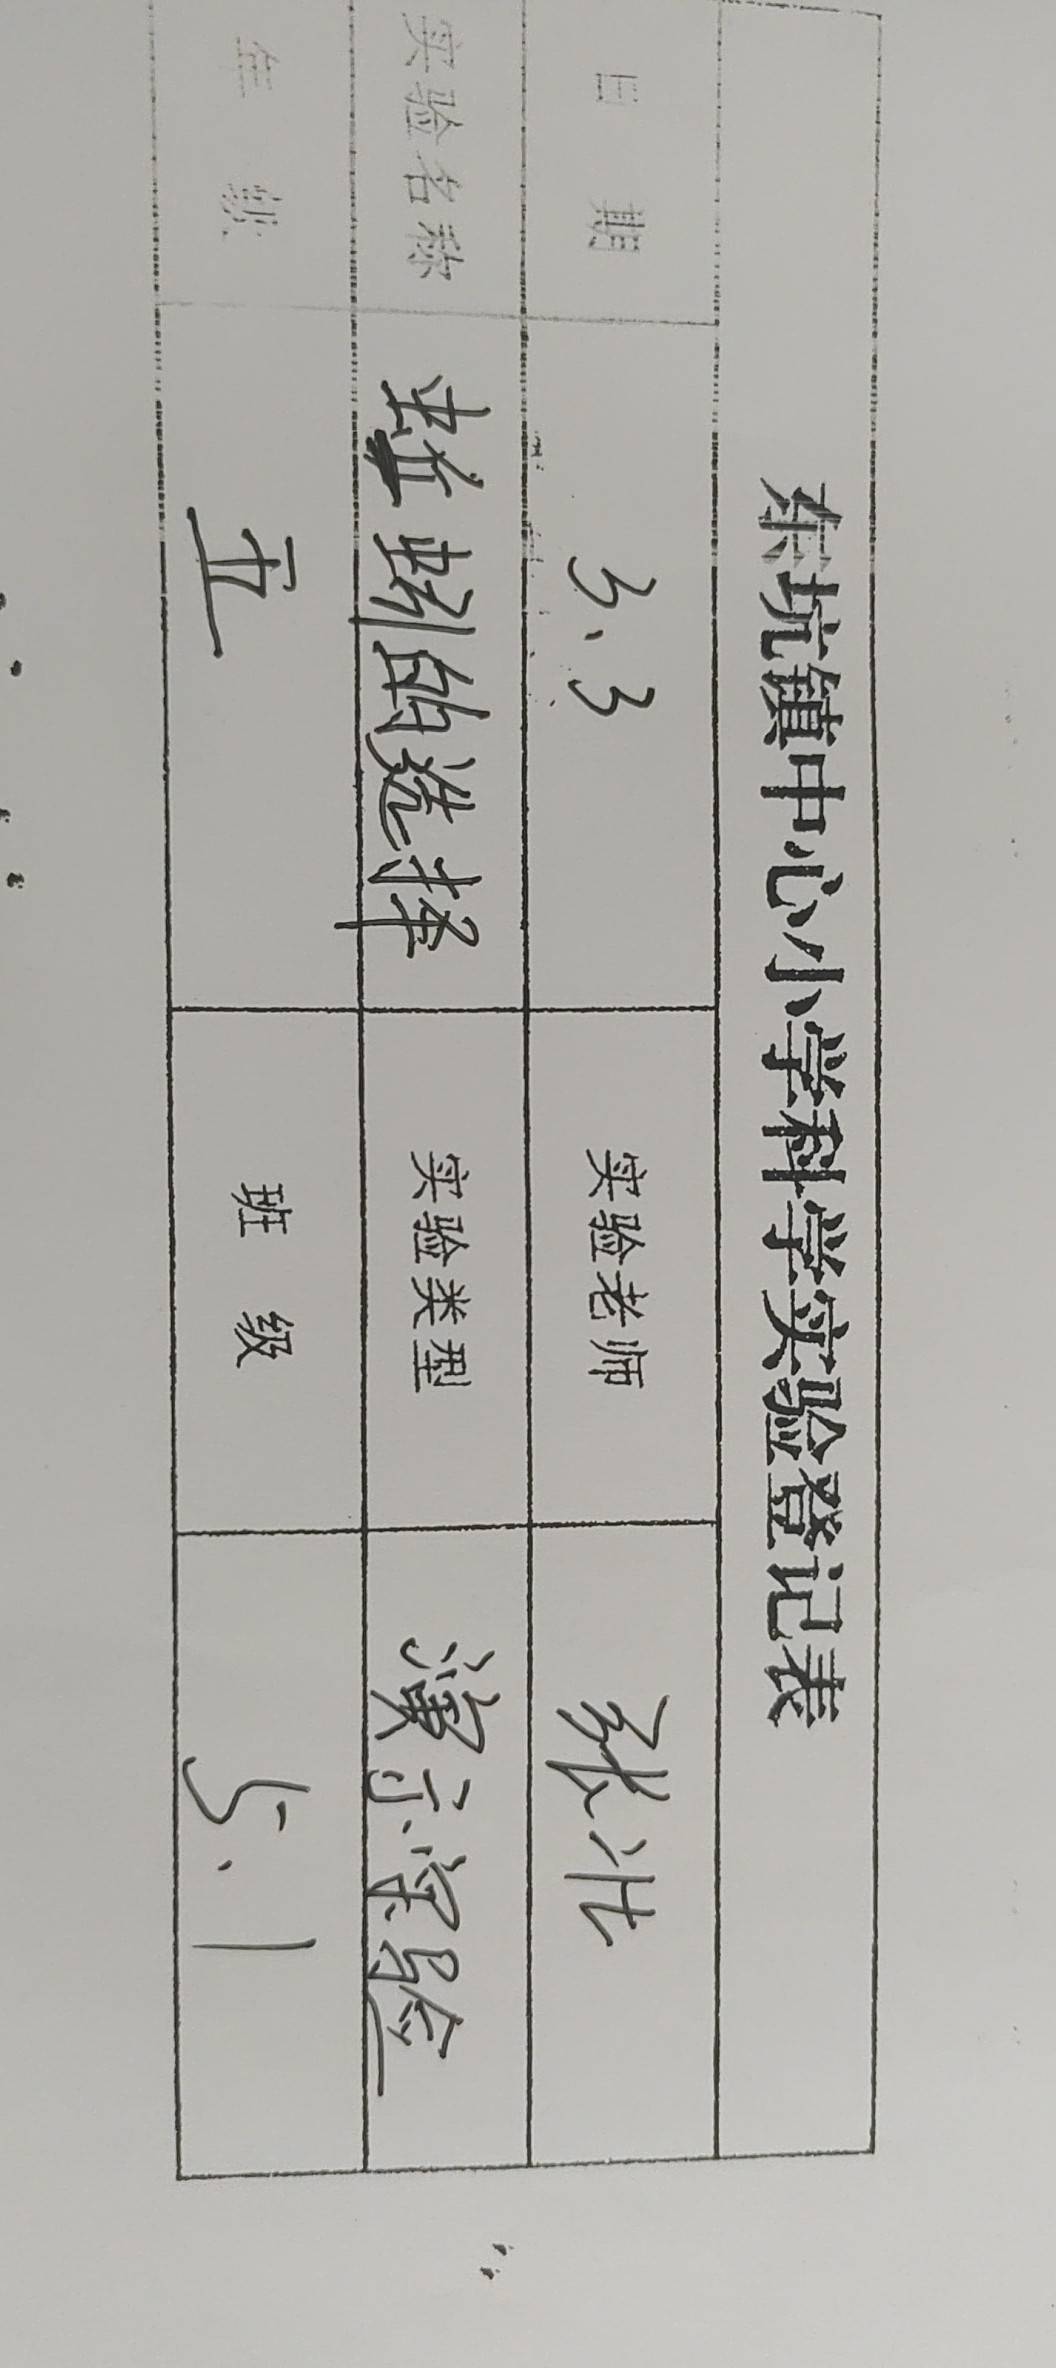 东坑镇中心小学科学实验登记表
日 期 3、3 实验老师 张壮
实验名称 蚯蚓的选择 实验类型 演示实验
年 级 五 班 级 5、1